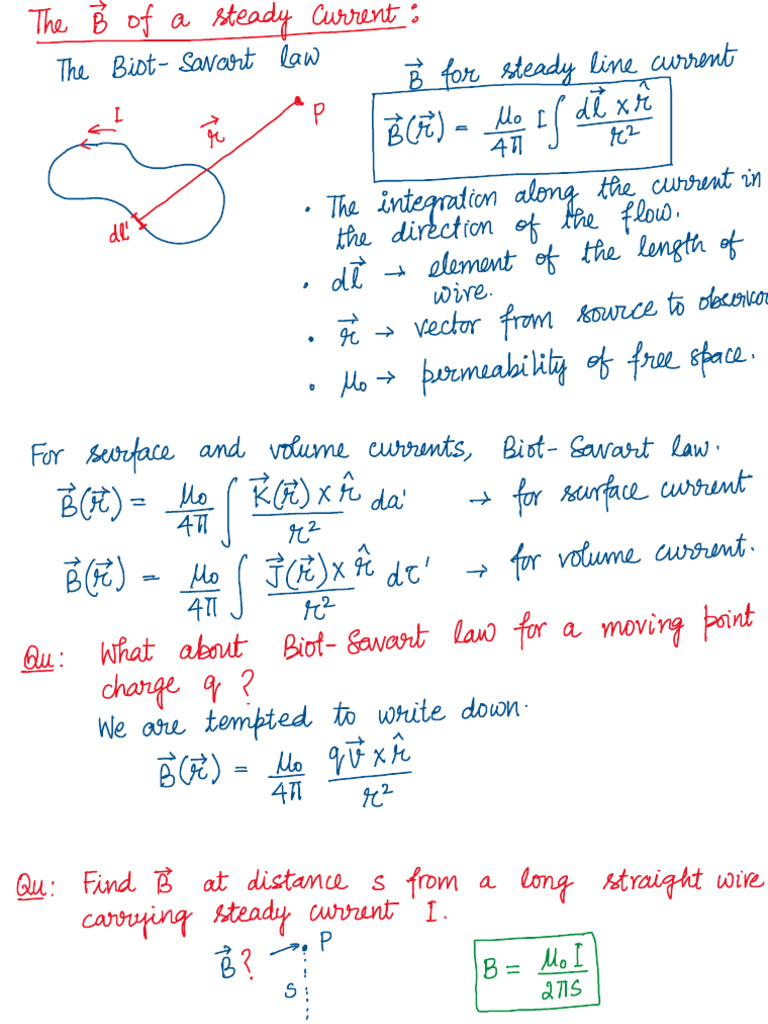 The B⃗ of a steady Current:
The Biot-Savart law
B⃗ for steady line current
I
r⃗
P
dl'
B⃗(r⃗) = μ₀/4π I ∫ dl⃗ × r̂ / r²
• The integration along the current in
the direction of the flow.
• dl⃗ → element of the length of
wire.
• r⃗ → vector from source to observor
• μ₀ → permeability of free space.
For surface and volume currents, Biot-Savart law.
B⃗(r⃗) = μ₀/4π ∫ K⃗(r⃗) × r̂ / r² da' → for surface current
B⃗(r⃗) = μ₀/4π ∫ J⃗(r⃗) × r̂ / r² dτ' → for volume current.
Qu: What about Biot-Savart law for a moving point
charge q ?
We are tempted to write down.
B⃗(r⃗) = μ₀/4π qv⃗ × r̂ / r²
Qu: Find B⃗ at distance s from a long straight wire
carrying steady current I.
B⃗? → P
s
B = μ₀ I / 2πs